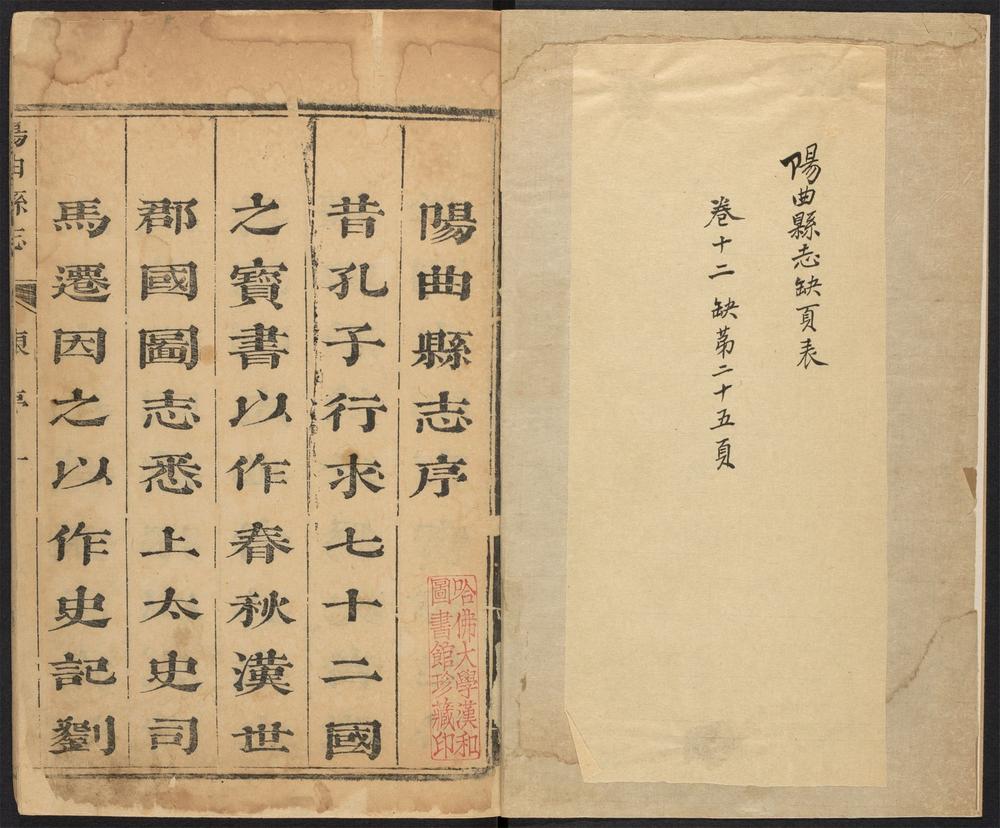 陽曲縣志缺頁表
卷十二 缺第二十五頁
陽曲縣志序
昔孔子行求七十二國
之寶書以作春秋漢世
郡國圖志悉上太史司
馬遷因之以作史記劉
哈佛大學漢和
圖書館珍藏印
陽曲縣志
序 一